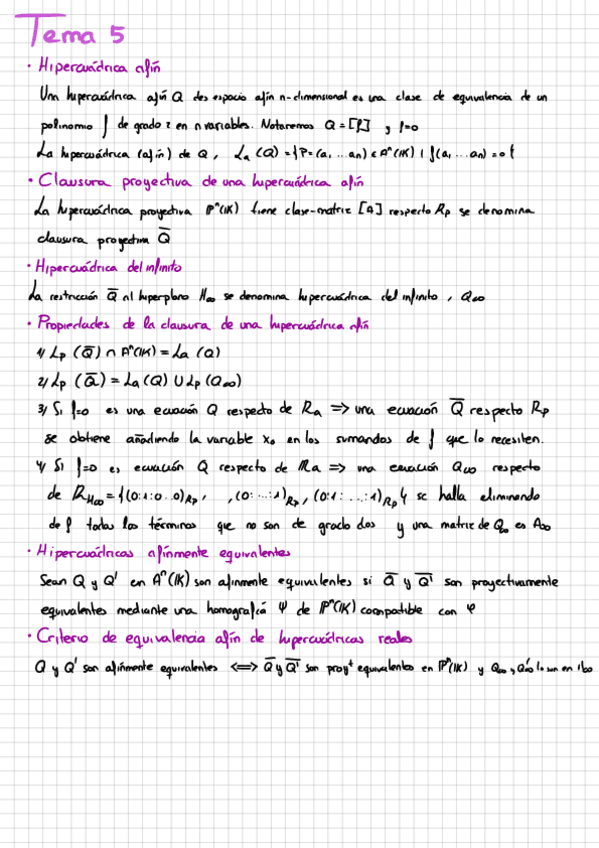 Tema 5
· Hipercuádrica afín
Una hipercuádrica afín Q des espacio afín n-dimensional es una clase de equivalencia de un
polinomio f de grado 2 en n variables. Notaremos Q=[f] y f=0
La hipercuádrica (afín) de Q, La (Q) = {P=(a1 ... an) ∈ Aⁿ(K) | f(a1 ... an) = 0}
· Clausura proyectiva de una hipercuádrica afín
La hipercuádrica proyectiva Pⁿ(K) tiene clase-matriz [A] respecto Rp se denomina
clausura proyectiva Q̅
· Hipercuádrica del infinito
La restricción Q̅ al hiperplano H∞ se denomina hipercuádrica del infinito, Q∞
· Propiedades de la clausura de una hipercuádrica afín
1/ Lp (Q̅) ∩ Aⁿ(K) = La (Q)
2/ Lp (Q̅) = La (Q) ∪ Lp (Q∞)
3/ Si f=0 es una ecuación Q respecto de Ra => una ecuación Q̅ respecto Rp
se obtiene añadiendo la variable x0 en los sumandos de f que lo necesiten.
4/ Si f=0 es ecuación Q respecto de Ra => una ecuación Q∞ respecto
de RH∞ = {(0:1:0..0)Rp, , (0: ...:1)Rp, (0:1: ...:1)Rp} se halla eliminando
de f todos los términos que no son de grado dos y una matriz de Q∞ es A∞
· Hipercuádricas afínmente equivalentes
Sean Q y Q' en Aⁿ(K) son afinmente equivalentes si Q̅ y Q̅' son proyectivamente
equivalentes mediante una homografía ψ de Pⁿ(K) compatible con φ
· Criterio de equivalencia afín de hipercuádricas reales
Q y Q' son afínmente equivalentes <=> Q̅ y Q̅' son proyᵗ equivalentes en Pⁿ(K) y Q∞, Q'∞ lo son en